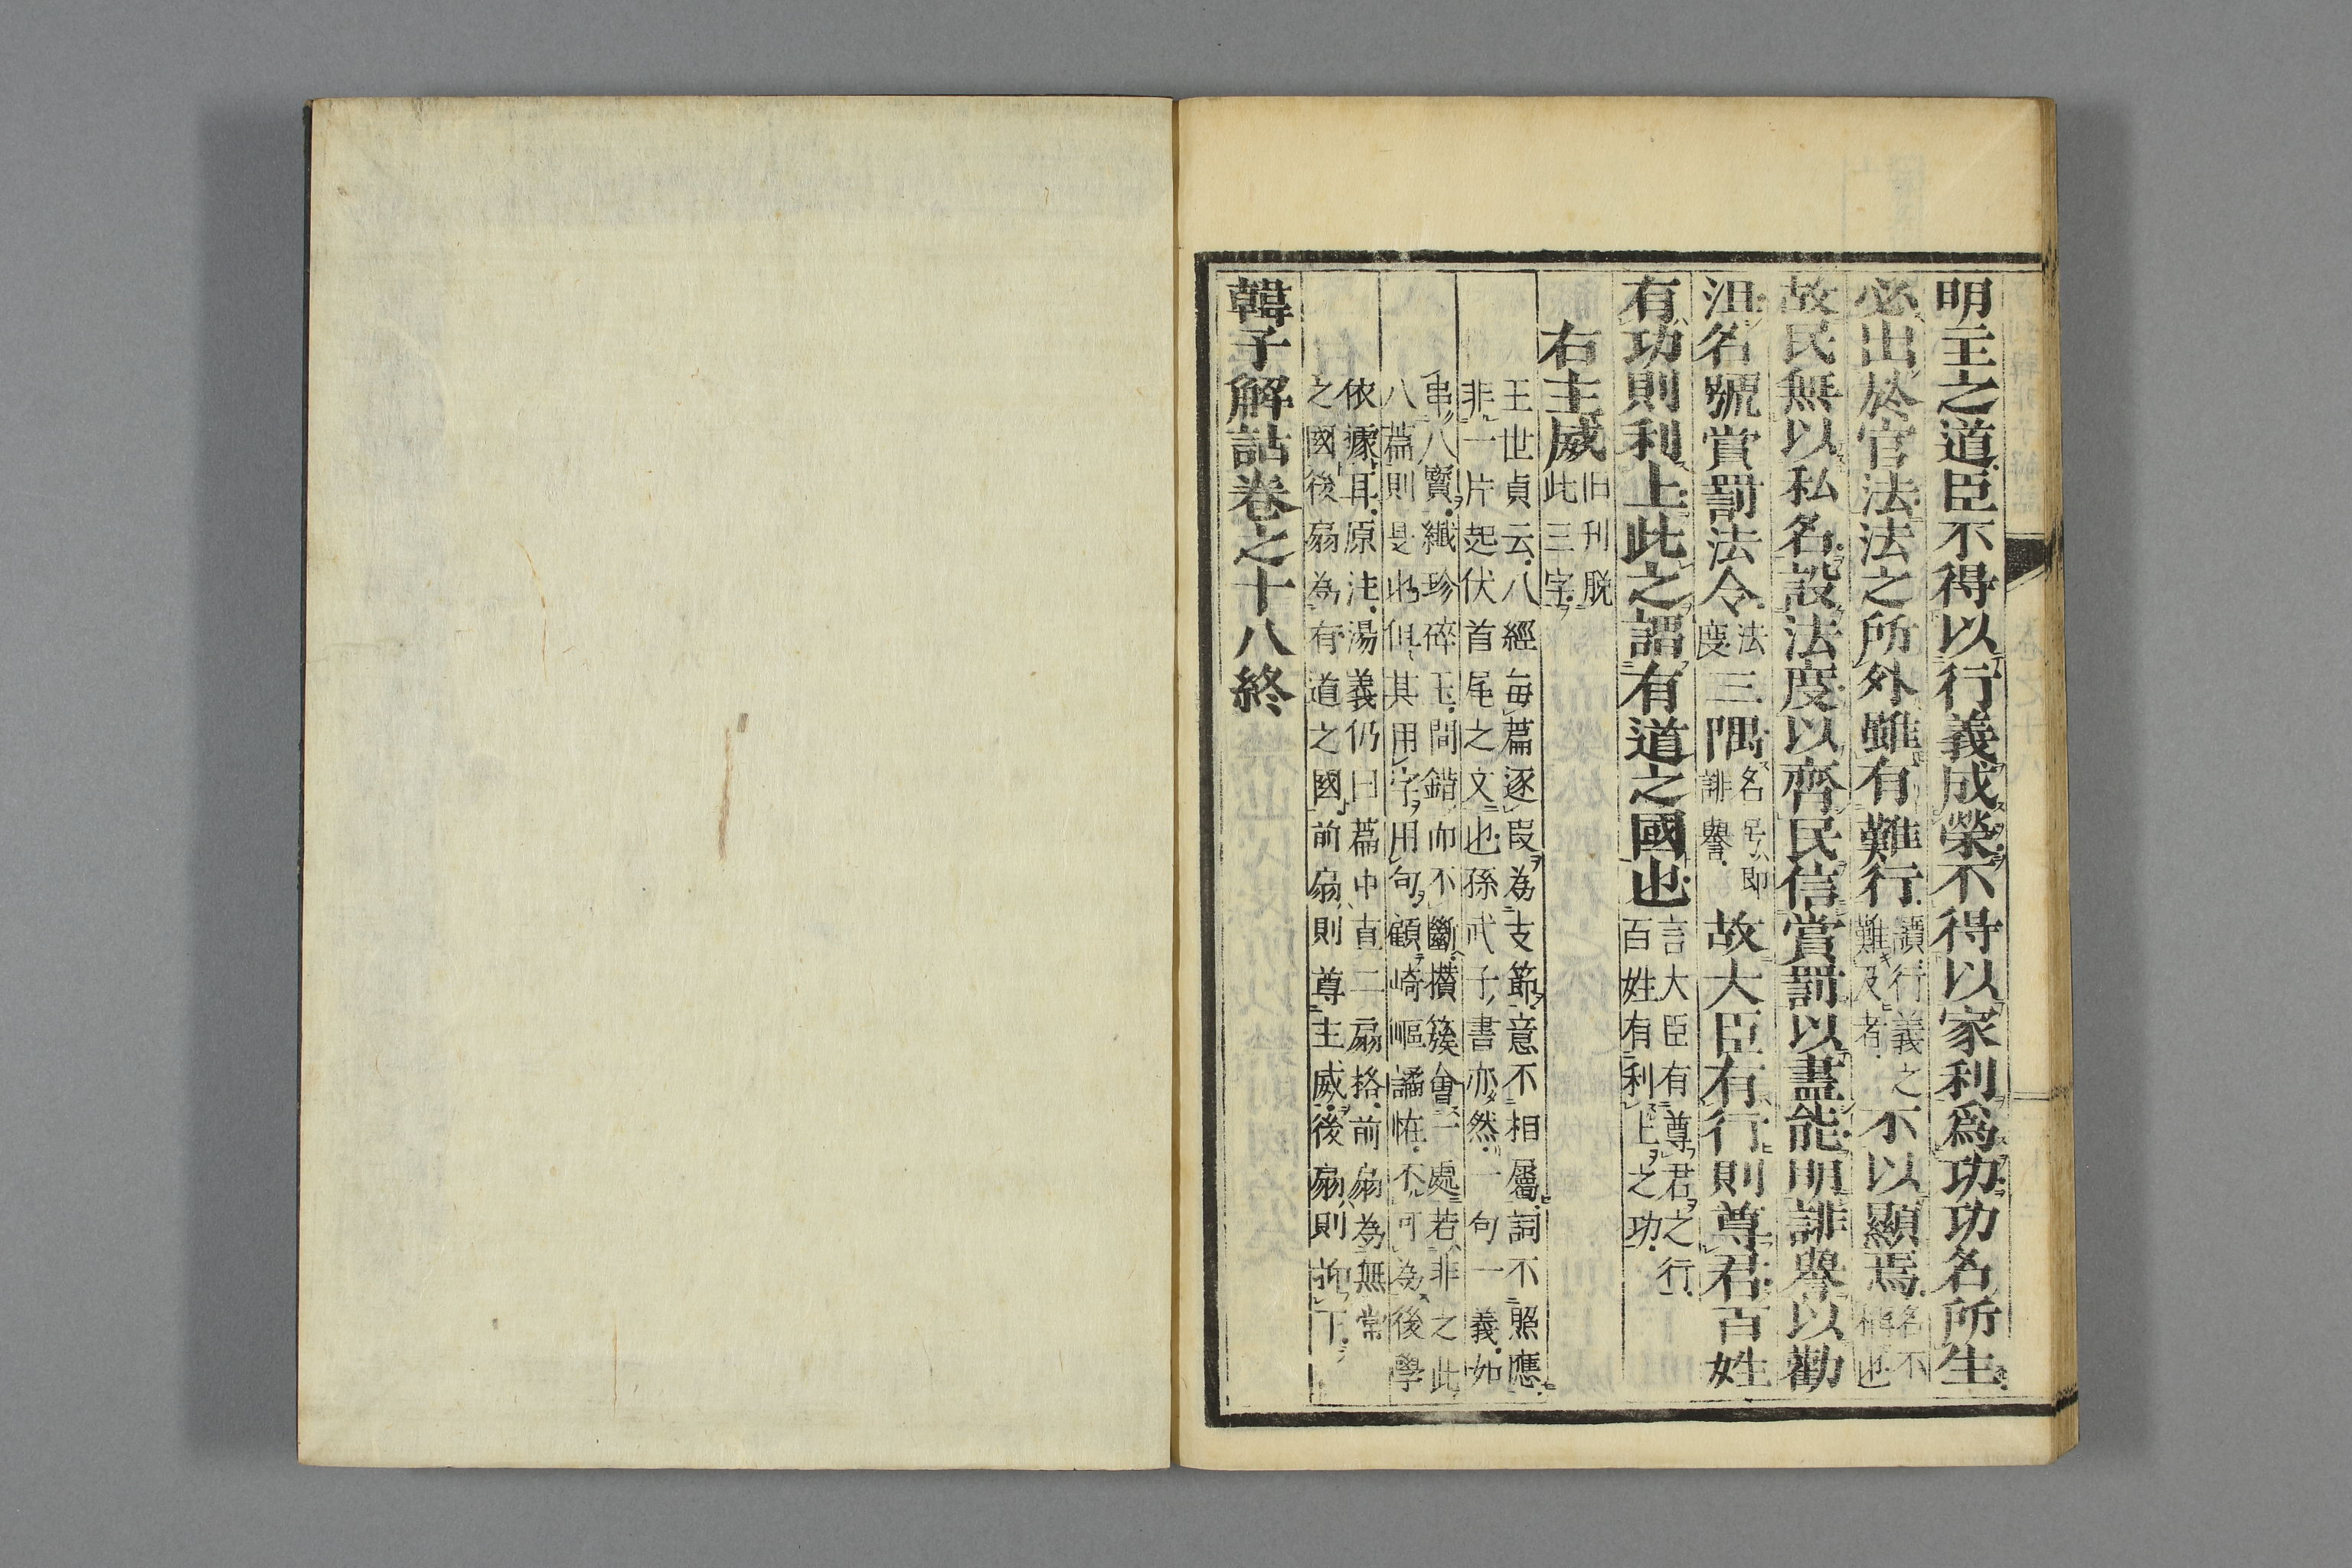 明主之道臣不得以行義成榮不得以家利爲功功名所生
必出於官法法之所外雖有難行雖行義之難及者不以顯焉名不稱也
故民無以私名設法度以齊民信賞罰以盡能明誹譽以勸
沮名號賞罰法令法度三隅名号即誹譽故大臣有行則尊君百姓
有功則利上此之謂有道之國也言大臣有尊君之行百姓有利上之功
右主威旧刊脱此三字
王世貞云八經毎篇逐段為支節意不相屬詞不照應
非一片起伏首尾之文也孫武子書亦然一句一義如
串八寶纖珍碎玉間錯而不斷攅簇會一處若非之此
八篇則是也但其用字用句顧崎嶇譎恠不可為後學
依據耳原注湯義仍曰篇中直二扇格前扇為無常
之國後扇為有道之國前扇則尊主威後扇則抑下
韓子解詁卷之十八終